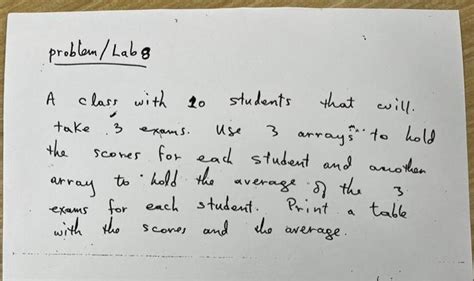 problem/Lab 8
A class with 20 students that will
take 3 exams. Use 3 arrays to hold
the scores for each student and another
array to hold the average of the 3
exams for each student. Print a table
with the scores and the average.